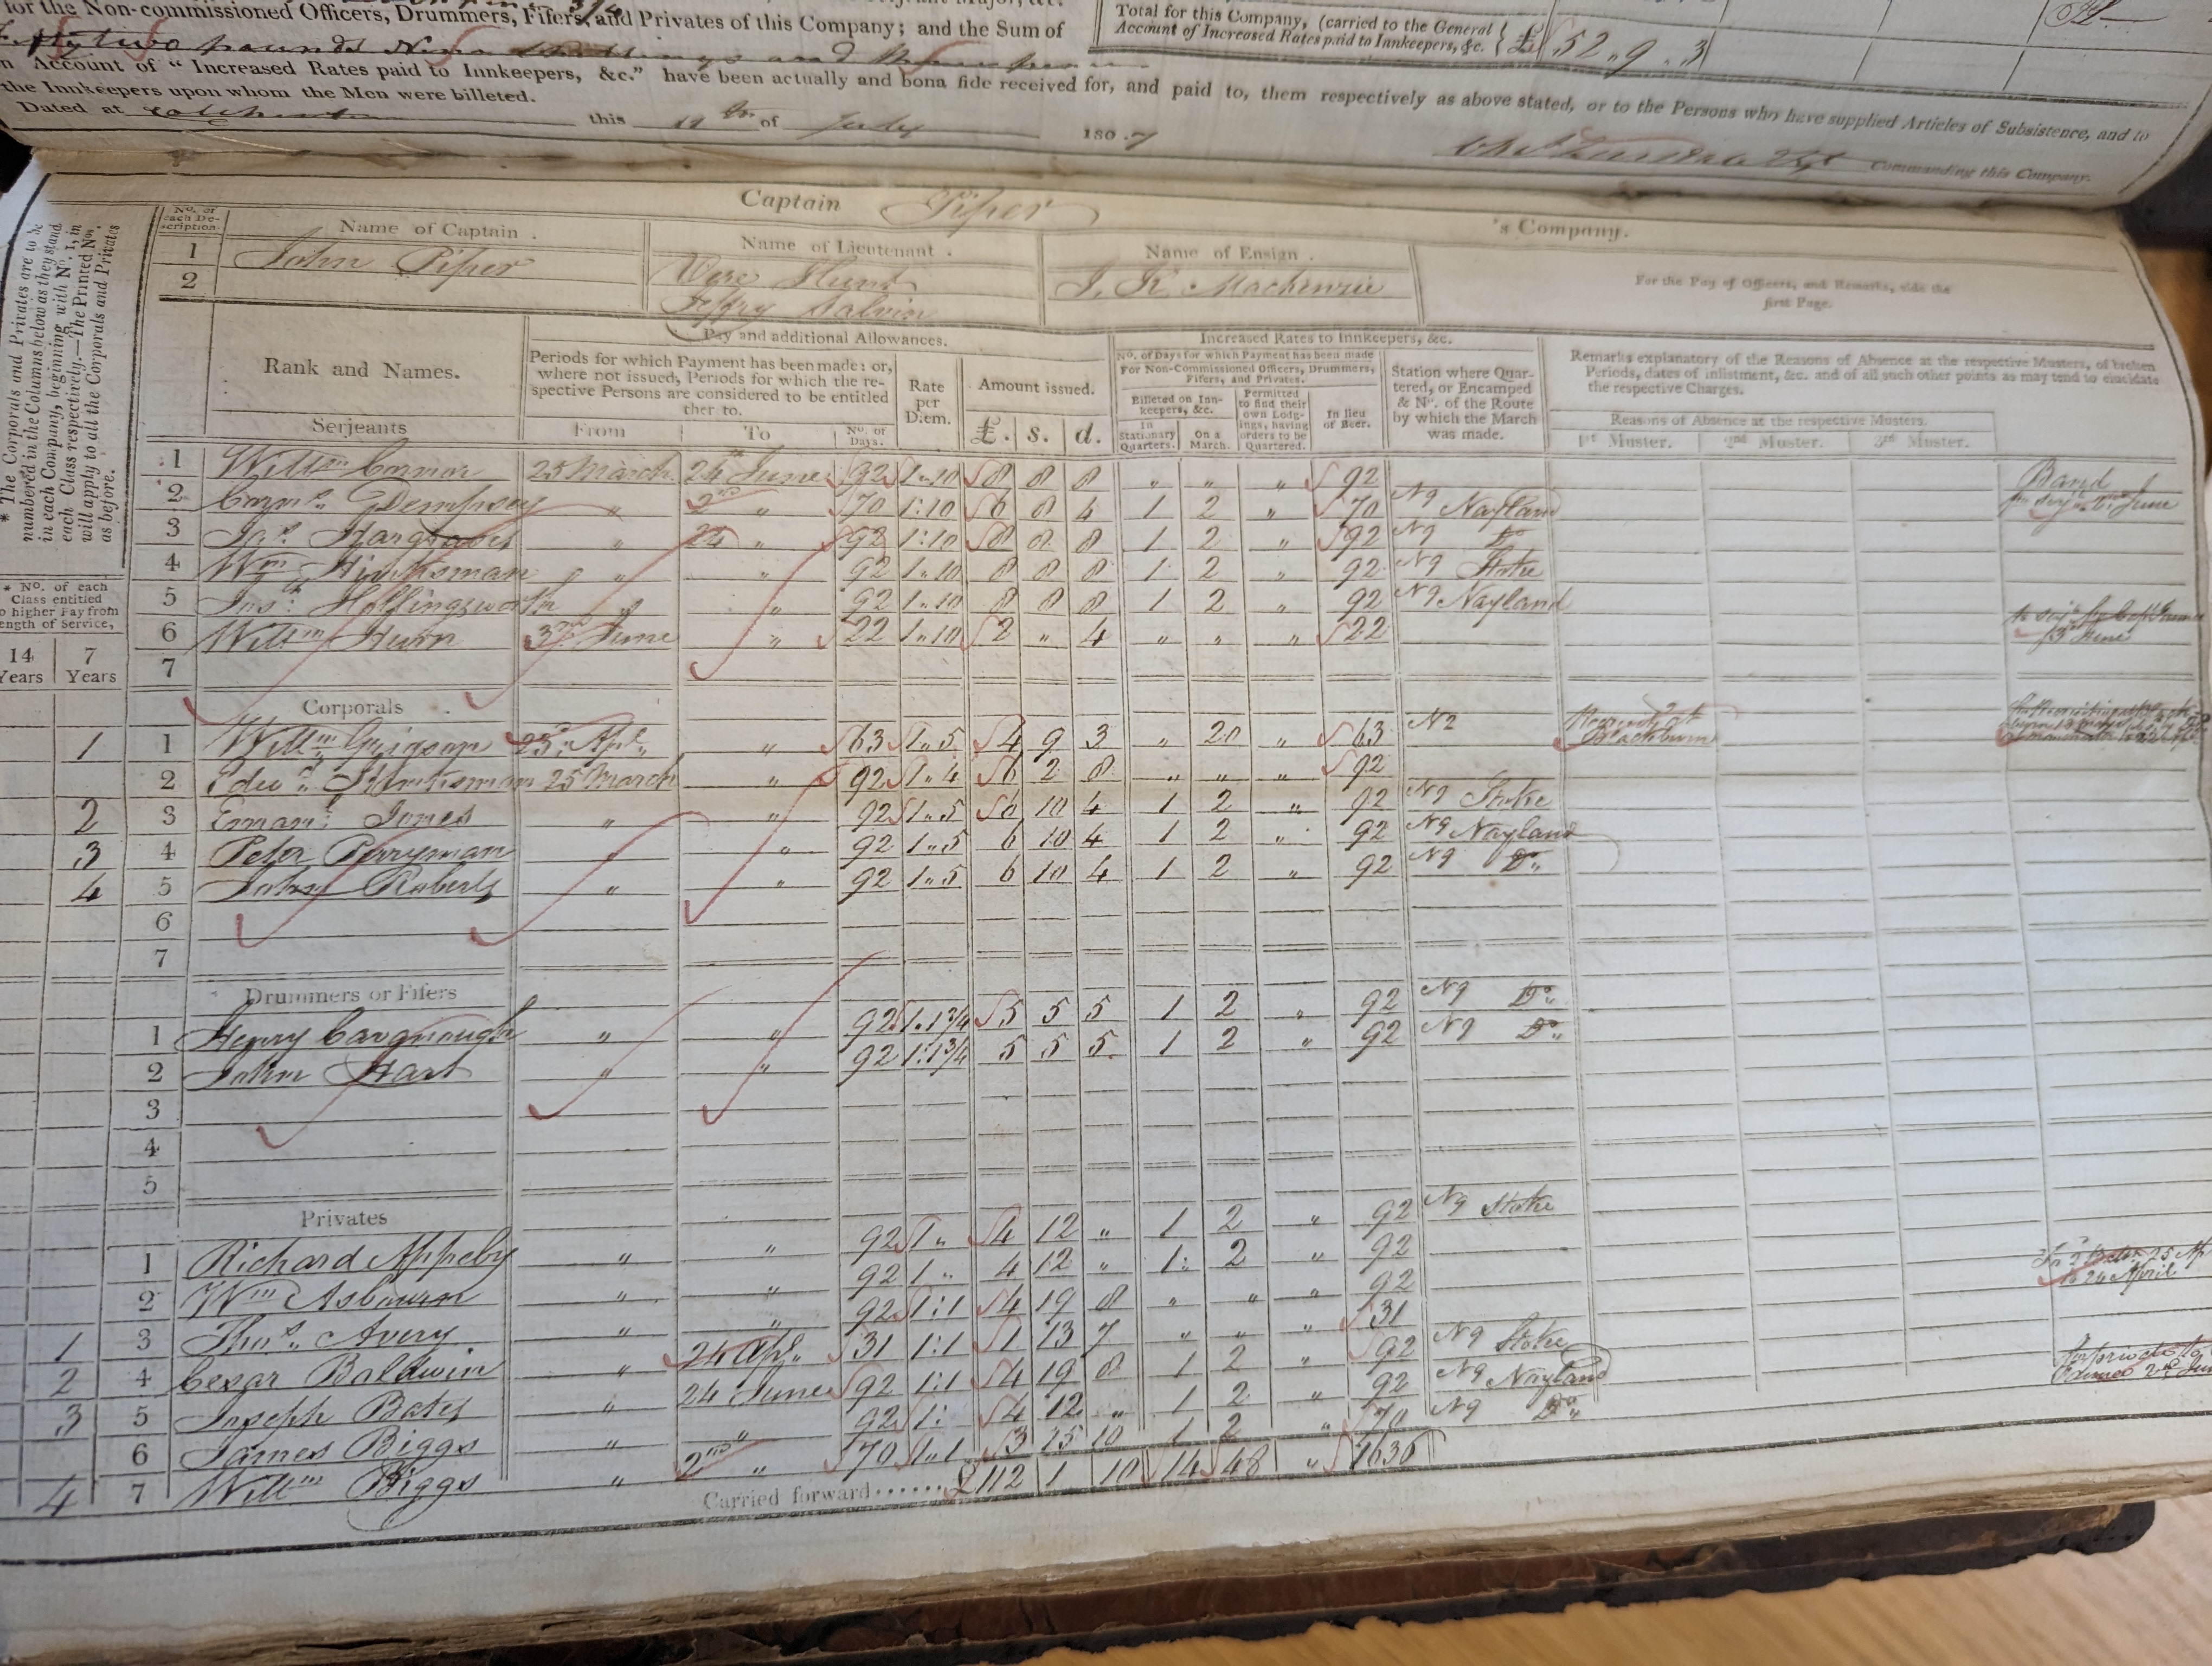 for the Non-commissioned Officers, Drummers, Fifers, and Privates of this Company; and the Sum of
Fifty two pounds Nine Shillings and Three pence
on Account of "Increased Rates paid to Innkeepers, &c." have been actually and bona fide received for, and paid to, them respectively as above stated, or to the Persons who have supplied Articles of Subsistence, and to
the Innkeepers upon whom the Men were billeted.
Total for this Company, (carried to the General Account of Increased Rates paid to Innkeepers, &c. £ 52 .. 9 .. 3
Dated at Colchester this of July 1807
Commanding this Company.
Captain Piper 's Company.
No. of each Description.
Name of Captain . Name of Lieutenant . Name of Ensign .
1 John Piper Vere Hunt J. K. Mackenzie
2 Jeffry Salvin
For the Pay of Officers, and Remarks, vide the first Page.
* The Corporals and Privates are to be numbered in the Columns below as they stand in each Company, beginning with No. 1, in each Class respectively.—The Printed Nos. will apply to all the Corporals and Privates as before.
* No. of each Class entitled to higher Pay from length of Service,
14 Years 7 Years
Rank and Names.
Pay and additional Allowances.
Periods for which Payment has been made: or, where not issued, Periods for which the respective Persons are considered to be entitled ther to.
From To No. of Days.
Rate per Diem.
Amount issued.
£. s. d.
Increased Rates to Innkeepers, &c.
No. of Days for which Payment has been made For Non-Commissioned Officers, Drummers, Fifers, and Privates.
Billeted on Innkeepers, &c.
In Stationary Quarters. On a March.
Permitted to find their own Lodgings, having orders to be Quartered.
In lieu of Beer.
Station where Quartered, or Encamped & No. of the Route by which the March was made.
Remarks explanatory of the Reasons of Absence at the respective Musters, of broken Periods, dates of inlistment, &c. and of all such other points as may tend to elucidate the respective Charges.
Reasons of Absence at the respective Musters.
1st Muster. 2nd Muster. 3rd Muster.
Serjeants
1 Willm Connor 25 March 24th June 92 1..10 8 8 8 " " " 92 Band
2 Corns. Dempsey " 2nd " 70 1:10 6 8 4 1 2 " 70 No 9 Nayland
3 Jas. Hargraves " 24 " 92 1:10 8 8 8 1 2 " 92 No 9 Do
4 Wm Hinksman " " 92 1..10 8 8 8 1 2 " 92 No 9 Stoke
5 Jos: Hollingsworth " " 92 1..10 8 8 8 1 2 " 92 No 9 Nayland
6 Willm Hurn 3rd June " 22 1..10 2 " 4 " " " 22
7
Corporals
1 1 Willm Grigson 23d Apl. " 63 1..5 4 9 3 " 20 " 63 No 2
2 Edwd. Hinksman 25 March " 92 1..4 6 2 8 " " " 92
2 3 Emanl. Jones " " 92 1..5 6 10 4 1 2 " 92 No 9 Stoke
3 4 Peter Perryman " " 92 1..5 6 10 4 1 2 " 92 No 9 Nayland
4 5 John Roberts " " 92 1..5 6 10 4 1 2 " 92 No 9 Do.
6
7
Drummers or Fifers
1 Henry Cavanough " " 92 1.1 3/4 5 5 5 1 2 " 92 No 9 Do.
2 John Hart " " 92 1:1 3/4 5 5 5 1 2 " 92 No 9 Do.
3
4
5
Privates
1 Richard Appleby " " 92 1 " 4 12 " 1 2 " 92 No 9 Stoke
2 Wm Asbourn " " 92 1 " 4 12 " 1 2 " 92
1 3 Thos. Avery " " 92 1:1 4 19 8 " " " 92
2 4 Cesar Baldwin " 24 Apl. 31 1:1 1 13 7 " " " 31
3 5 Joseph Bates " 24 June 92 1:1 4 19 8 1 2 " 92 No 9 Stoke
6 James Biggs " " 92 1: 4 12 " 1 2 " 92 No 9 Nayland
4 7 Willm Biggs " 2nd " 70 1..1 3 15 10 1 2 " 70 No 9 Do.
Carried forward...... £112 1 10 14 48 " 1636